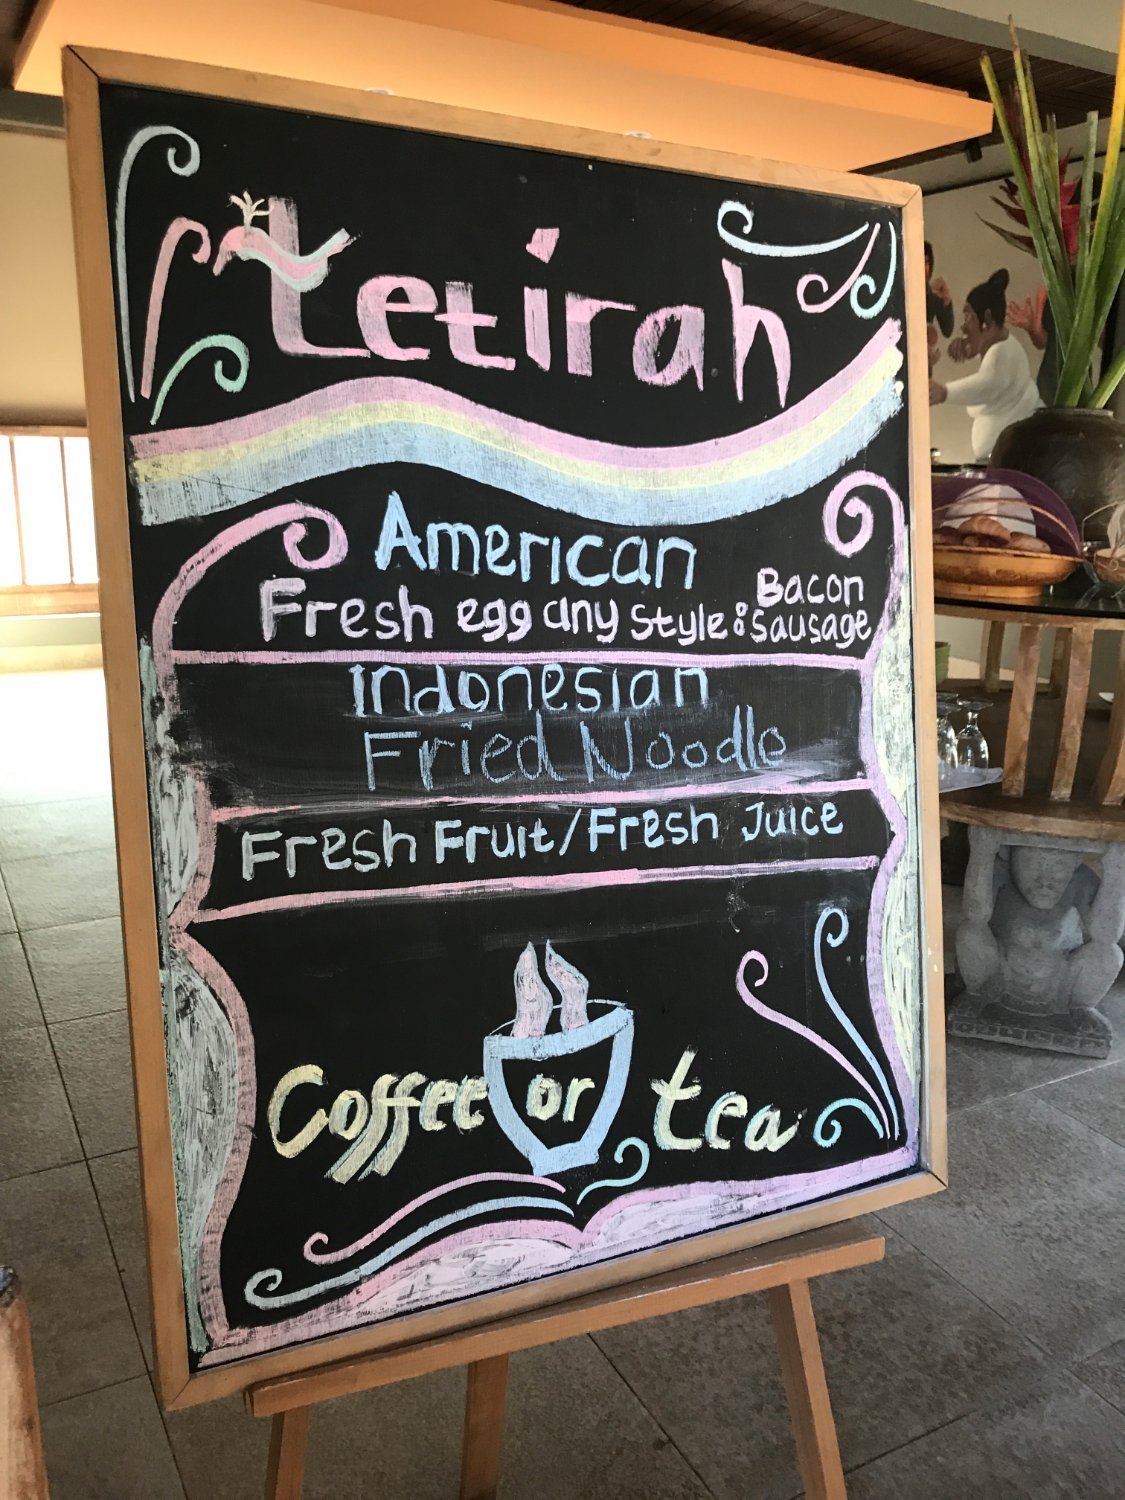 tetirah
American
Fresh egg any style : Bacon
sausage
Indonesian
Fried Noodle
Fresh Fruit/Fresh Juice
Coffee or tea